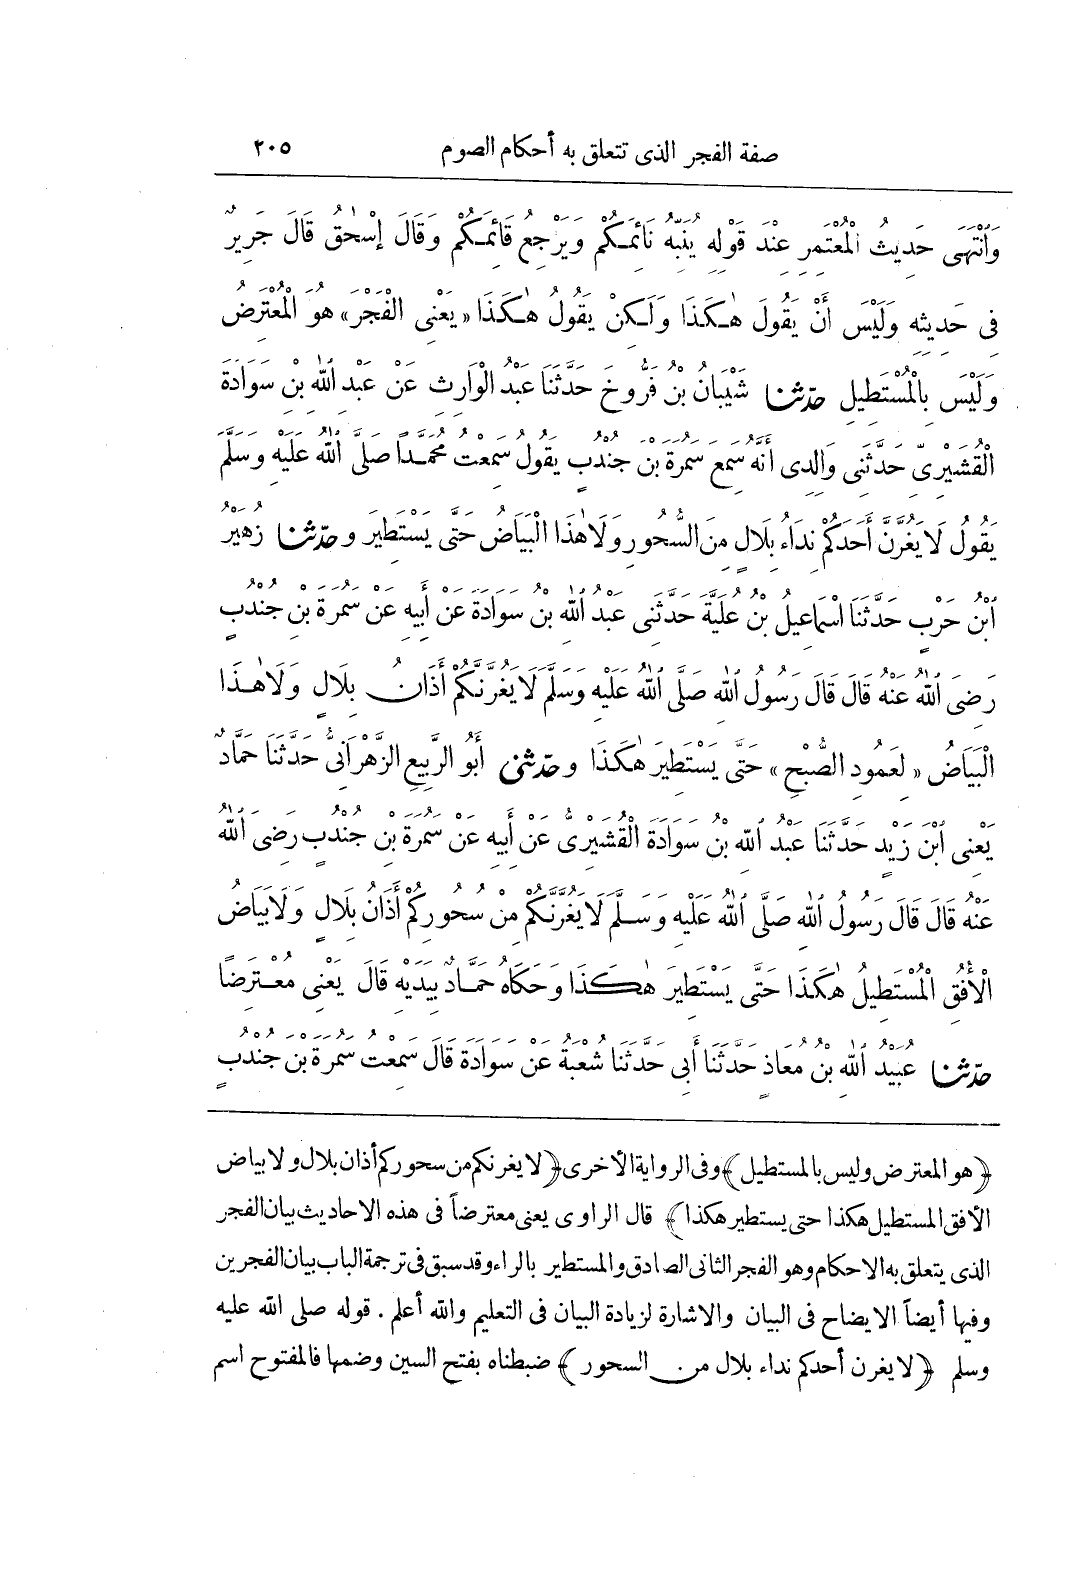 صفة الفجر الذى تتعلق به أحكام الصوم ٢٠٥
وَانْتَهَى حَدِيثُ الْمُعْتَمِرِ عِنْدَ قَوْلِهِ يُنَبِّهُ نَائِمَكُمْ وَيَرْجِعُ قَائِمَكُمْ وَقَالَ إِسْحٰقُ قَالَ جَرِيرٌ
فِى حَدِيثِهِ وَلَيْسَ أَنْ يَقُولَ هٰكَذَا وَلَكِنْ يَقُولُ هٰكَذَا «يَعْنِى الْفَجْرَ» هُوَ الْمُعْتَرِضُ
وَلَيْسَ بِالْمُسْتَطِيلِ حدّثنا شَيْبَانُ بْنُ فَرُّوخَ حَدَّثَنَا عَبْدُ الْوَارِثِ عَنْ عَبْدِ اللهِ بْنِ سَوَادَةَ
الْقُشَيْرِىِّ حَدَّثَنِى وَالِدِى أَنَّهُ سَمِعَ سَمُرَةَ بْنَ جُنْدُبٍ يَقُولُ سَمِعْتُ مُحَمَّدًا صَلَّى اللهُ عَلَيْهِ وَسَلَّمَ
يَقُولُ لَا يَغُرَّنَّ أَحَدَكُمْ نِدَاءُ بِلَالٍ مِنَ السُّحُورِ وَلَا هٰذَا الْبَيَاضُ حَتَّى يَسْتَطِيرَ و حدّثنا زُهَيْرُ
ابْنُ حَرْبٍ حَدَّثَنَا اسْمَاعِيلُ بْنُ عُلَيَّةَ حَدَّثَنِى عَبْدُ اللهِ بْنُ سَوَادَةَ عَنْ أَبِيهِ عَنْ سَمُرَةَ بْنِ جُنْدُبٍ
رَضِىَ اللهُ عَنْهُ قَالَ قَالَ رَسُولُ اللهِ صَلَّى اللهُ عَلَيْهِ وَسَلَّمَ لَا يَغُرَّنَّكُمْ أَذَانُ بِلَالٍ وَلَا هٰذَا
الْبَيَاضُ «لِعَمُودِ الصُّبْحِ» حَتَّى يَسْتَطِيرَ هٰكَذَا و حدّثنى أَبُو الرَّبِيعِ الزَّهْرَانِىُّ حَدَّثَنَا حَمَّادٌ
يَعْنِى ابْنَ زَيْدٍ حَدَّثَنَا عَبْدُ اللهِ بْنُ سَوَادَةَ الْقُشَيْرِىُّ عَنْ أَبِيهِ عَنْ سَمُرَةَ بْنِ جُنْدُبٍ رَضِىَ اللهُ
عَنْهُ قَالَ قَالَ رَسُولُ اللهِ صَلَّى اللهُ عَلَيْهِ وَسَلَّمَ لَا يَغُرَّنَّكُمْ مِنْ سُحُورِكُمْ أَذَانُ بِلَالٍ وَلَا بَيَاضُ
الْأُفُقِ الْمُسْتَطِيلُ هٰكَذَا حَتَّى يَسْتَطِيرَ هٰكَذَا وَحَكَاهُ حَمَّادٌ بِيَدَيْهِ قَالَ يَعْنِى مُعْتَرِضًا
حدّثنا عُبَيْدُ اللهِ بْنُ مُعَاذٍ حَدَّثَنَا أَبِى حَدَّثَنَا شُعْبَةُ عَنْ سَوَادَةَ قَالَ سَمِعْتُ سَمُرَةَ بْنَ جُنْدُبٍ
﴿هو المعترض وليس بالمستطيل﴾ وفى الرواية الأخرى ﴿لا يغرنكم من سحوركم أذان بلال ولا بياض
الأفق المستطيل هكذا حتى يستطير هكذا﴾ قال الراوى يعنى معترضاً فى هذه الاحاديث بيان الفجر
الذى يتعلق به الاحكام وهو الفجر الثانى الصادق والمستطير بالراء وقد سبق فى ترجمة الباب بيان الفجرين
وفيها أيضاً الايضاح فى البيان والاشارة لزيادة البيان فى التعليم والله أعلم . قوله صلى الله عليه
وسلم ﴿لا يغرن أحدكم نداء بلال من السحور﴾ ضبطناه بفتح السين وضمها فالمفتوح اسم